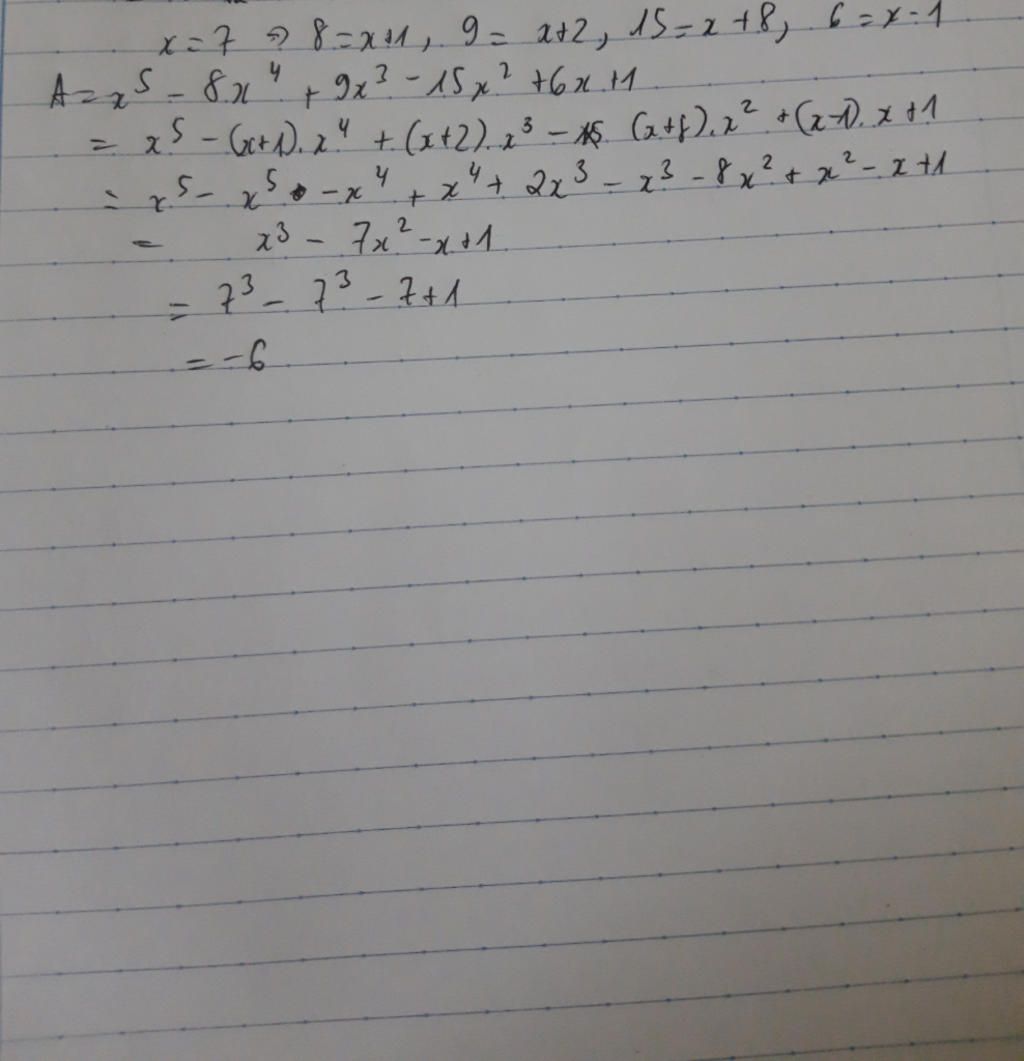 x = 7 => 8 = x+1, 9 = x+2, 15 = x+8, 6 = x-1
A = x⁵ - 8x⁴ + 9x³ - 15x² + 6x + 1
= x⁵ - (x+1).x⁴ + (x+2).x³ - (x+8).x² + (x-1).x + 1
= x⁵ - x⁵ - x⁴ + x⁴ + 2x³ - x³ - 8x² + x² - x + 1
= x³ - 7x² - x + 1
= 7³ - 7³ - 7 + 1
= -6